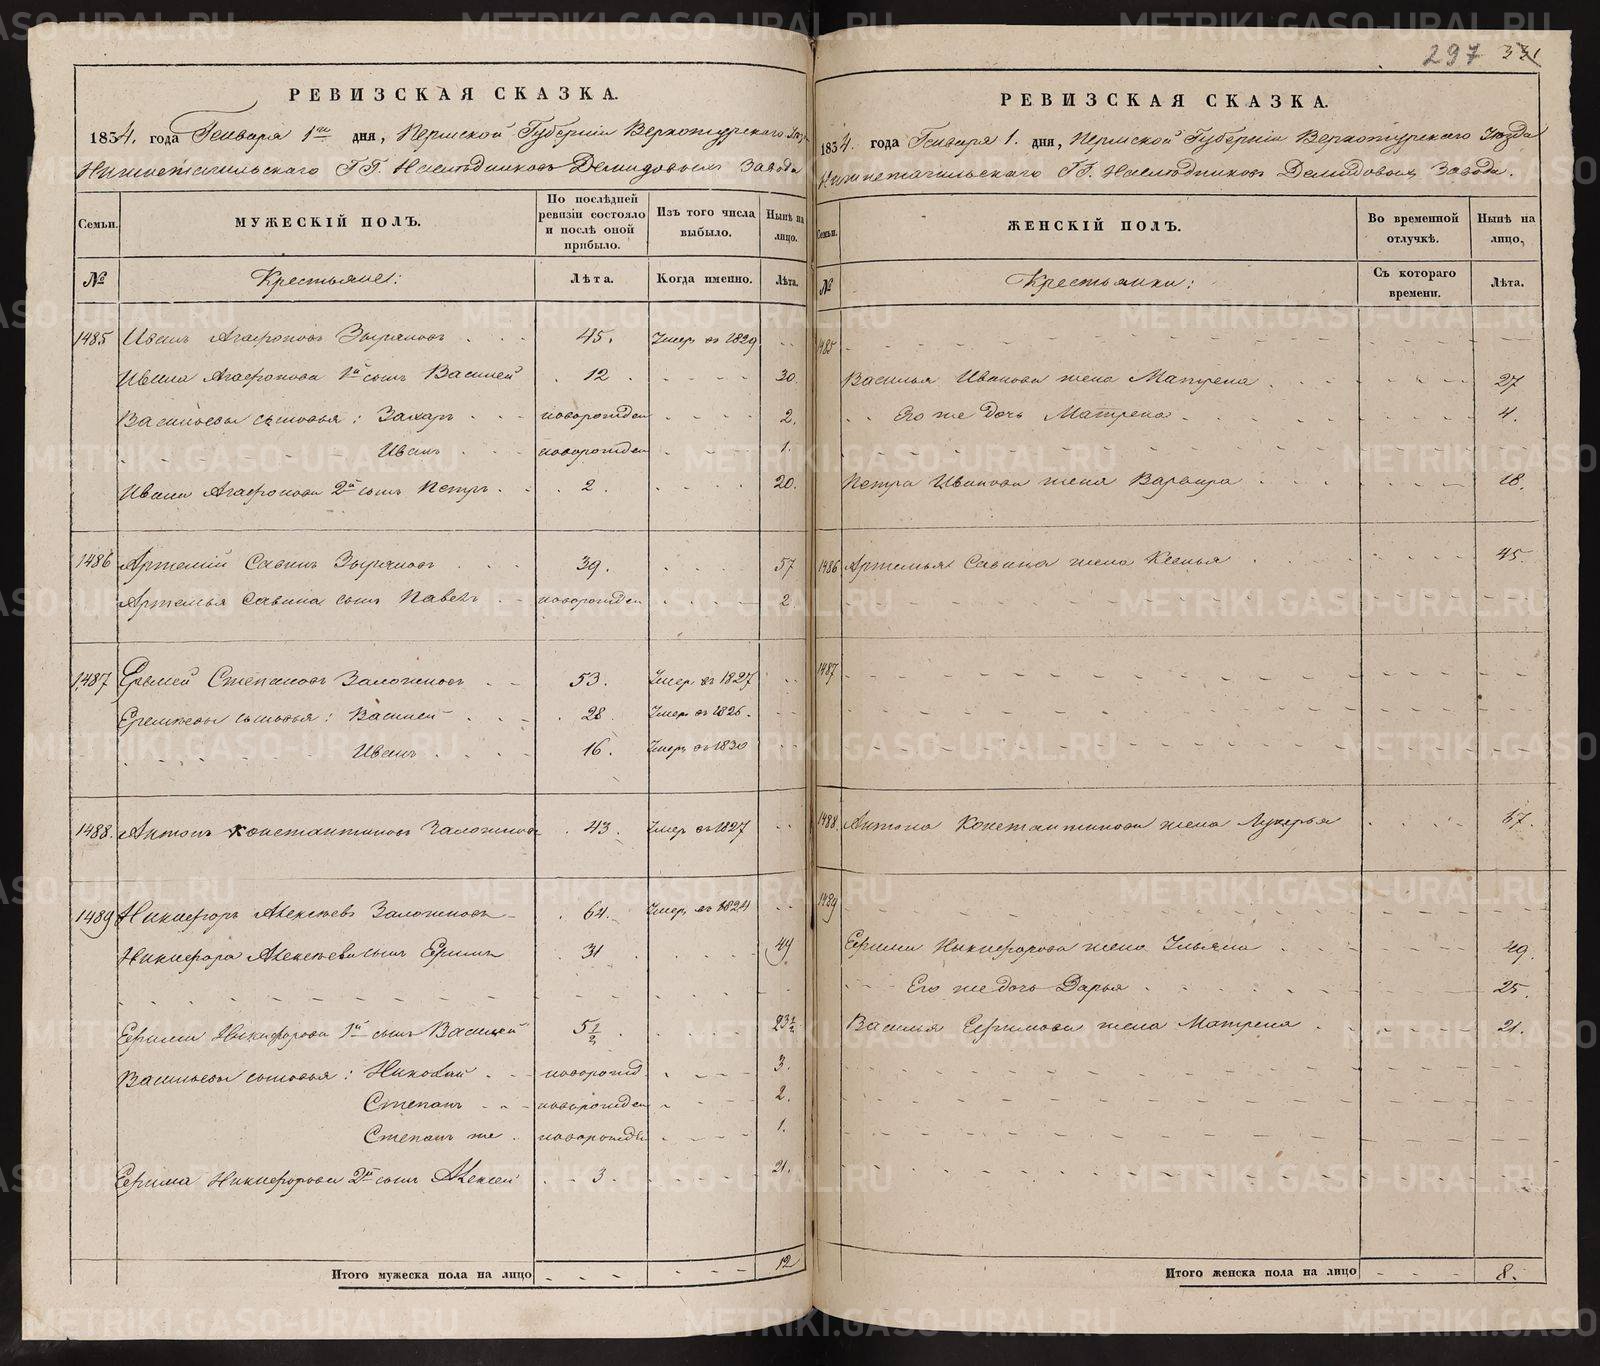 297 331
РЕВИЗСКАЯ СКАЗКА.
1834. года Генваря 1го дня, Пермской Губерніи Верхотурскаго Уѣз-
Нижнетагильскаго ГГ. Наслѣдниковъ Демидовыхъ Завода
Семьи.
МУЖЕСКІЙ ПОЛЪ.
По послѣдней ревизіи состояло и послѣ оной прибыло.
Изъ того числа выбыло.
Нынѣ на лицо.
№ Крестьяне: Лѣта. Когда именно. Лѣта.
1485 Иванъ Агафоновъ Зыряновъ 45. Умер. въ 1829
Ивана Агафонова 1й сынъ Василей 12 30.
Васильевы сыновья: Захаръ новорожден 2.
Иванъ новорожден 1.
Ивана Агафонова 2й сынъ Петръ 2. 20.
1486 Артемій Савинъ Зыряновъ 39. 57
Артемья Савина сынъ Павелъ новорожден 2.
1487 Еремей Степановъ Заложновъ 53. Умер. въ 1827
Еремѣевы сыновья: Василей 28 Умер. въ 1826.
Иванъ 16. Умер. въ 1830
1488. Антонъ Константиновъ Заложновъ 43. Умер. въ 1827
1489 Никифоръ Алексѣевъ Заложновъ 64. Умер. въ 1824
Никифора Алексѣева сынъ Ефимъ 31 49
Ефима Никифорова 1й сынъ Василей 5 1/2 23 1/2
Васильевы сыновья: Николай новорожд. 3.
Степанъ новорожден 2.
Степанъ же новорожден 1.
Ефима Никифорова 2й сынъ Алексей 3 21.
Итого мужеска пола на лицо 12
РЕВИЗСКАЯ СКАЗКА.
1834. года Генваря 1. дня, Пермской Губерніи Верхотурскаго Уѣзда
Нижнетагильскаго ГГ. Наслѣдниковъ Демидовыхъ Завода.
Семьи.
ЖЕНСКІЙ ПОЛЪ.
Во временной отлучкѣ.
Нынѣ на лицо,
№ Крестьянки: Съ котораго времени. Лѣта.
1485
Василья Иванова жена Матрена 27
Его же дочь Матрена 4.
Петра Иванова жена Варвара 18.
1486 Артемья Савина жена Ксенья 45.
1487
1488. Антона Константинова жена Лукерья 57.
1489
Ефима Никифорова жена Ульяна 49.
Его же дочь Дарья 25.
Василья Ефимова жена Матрена 21.
Итого женска пола на лицо 8.
METRIKI.GASO-URAL.RU